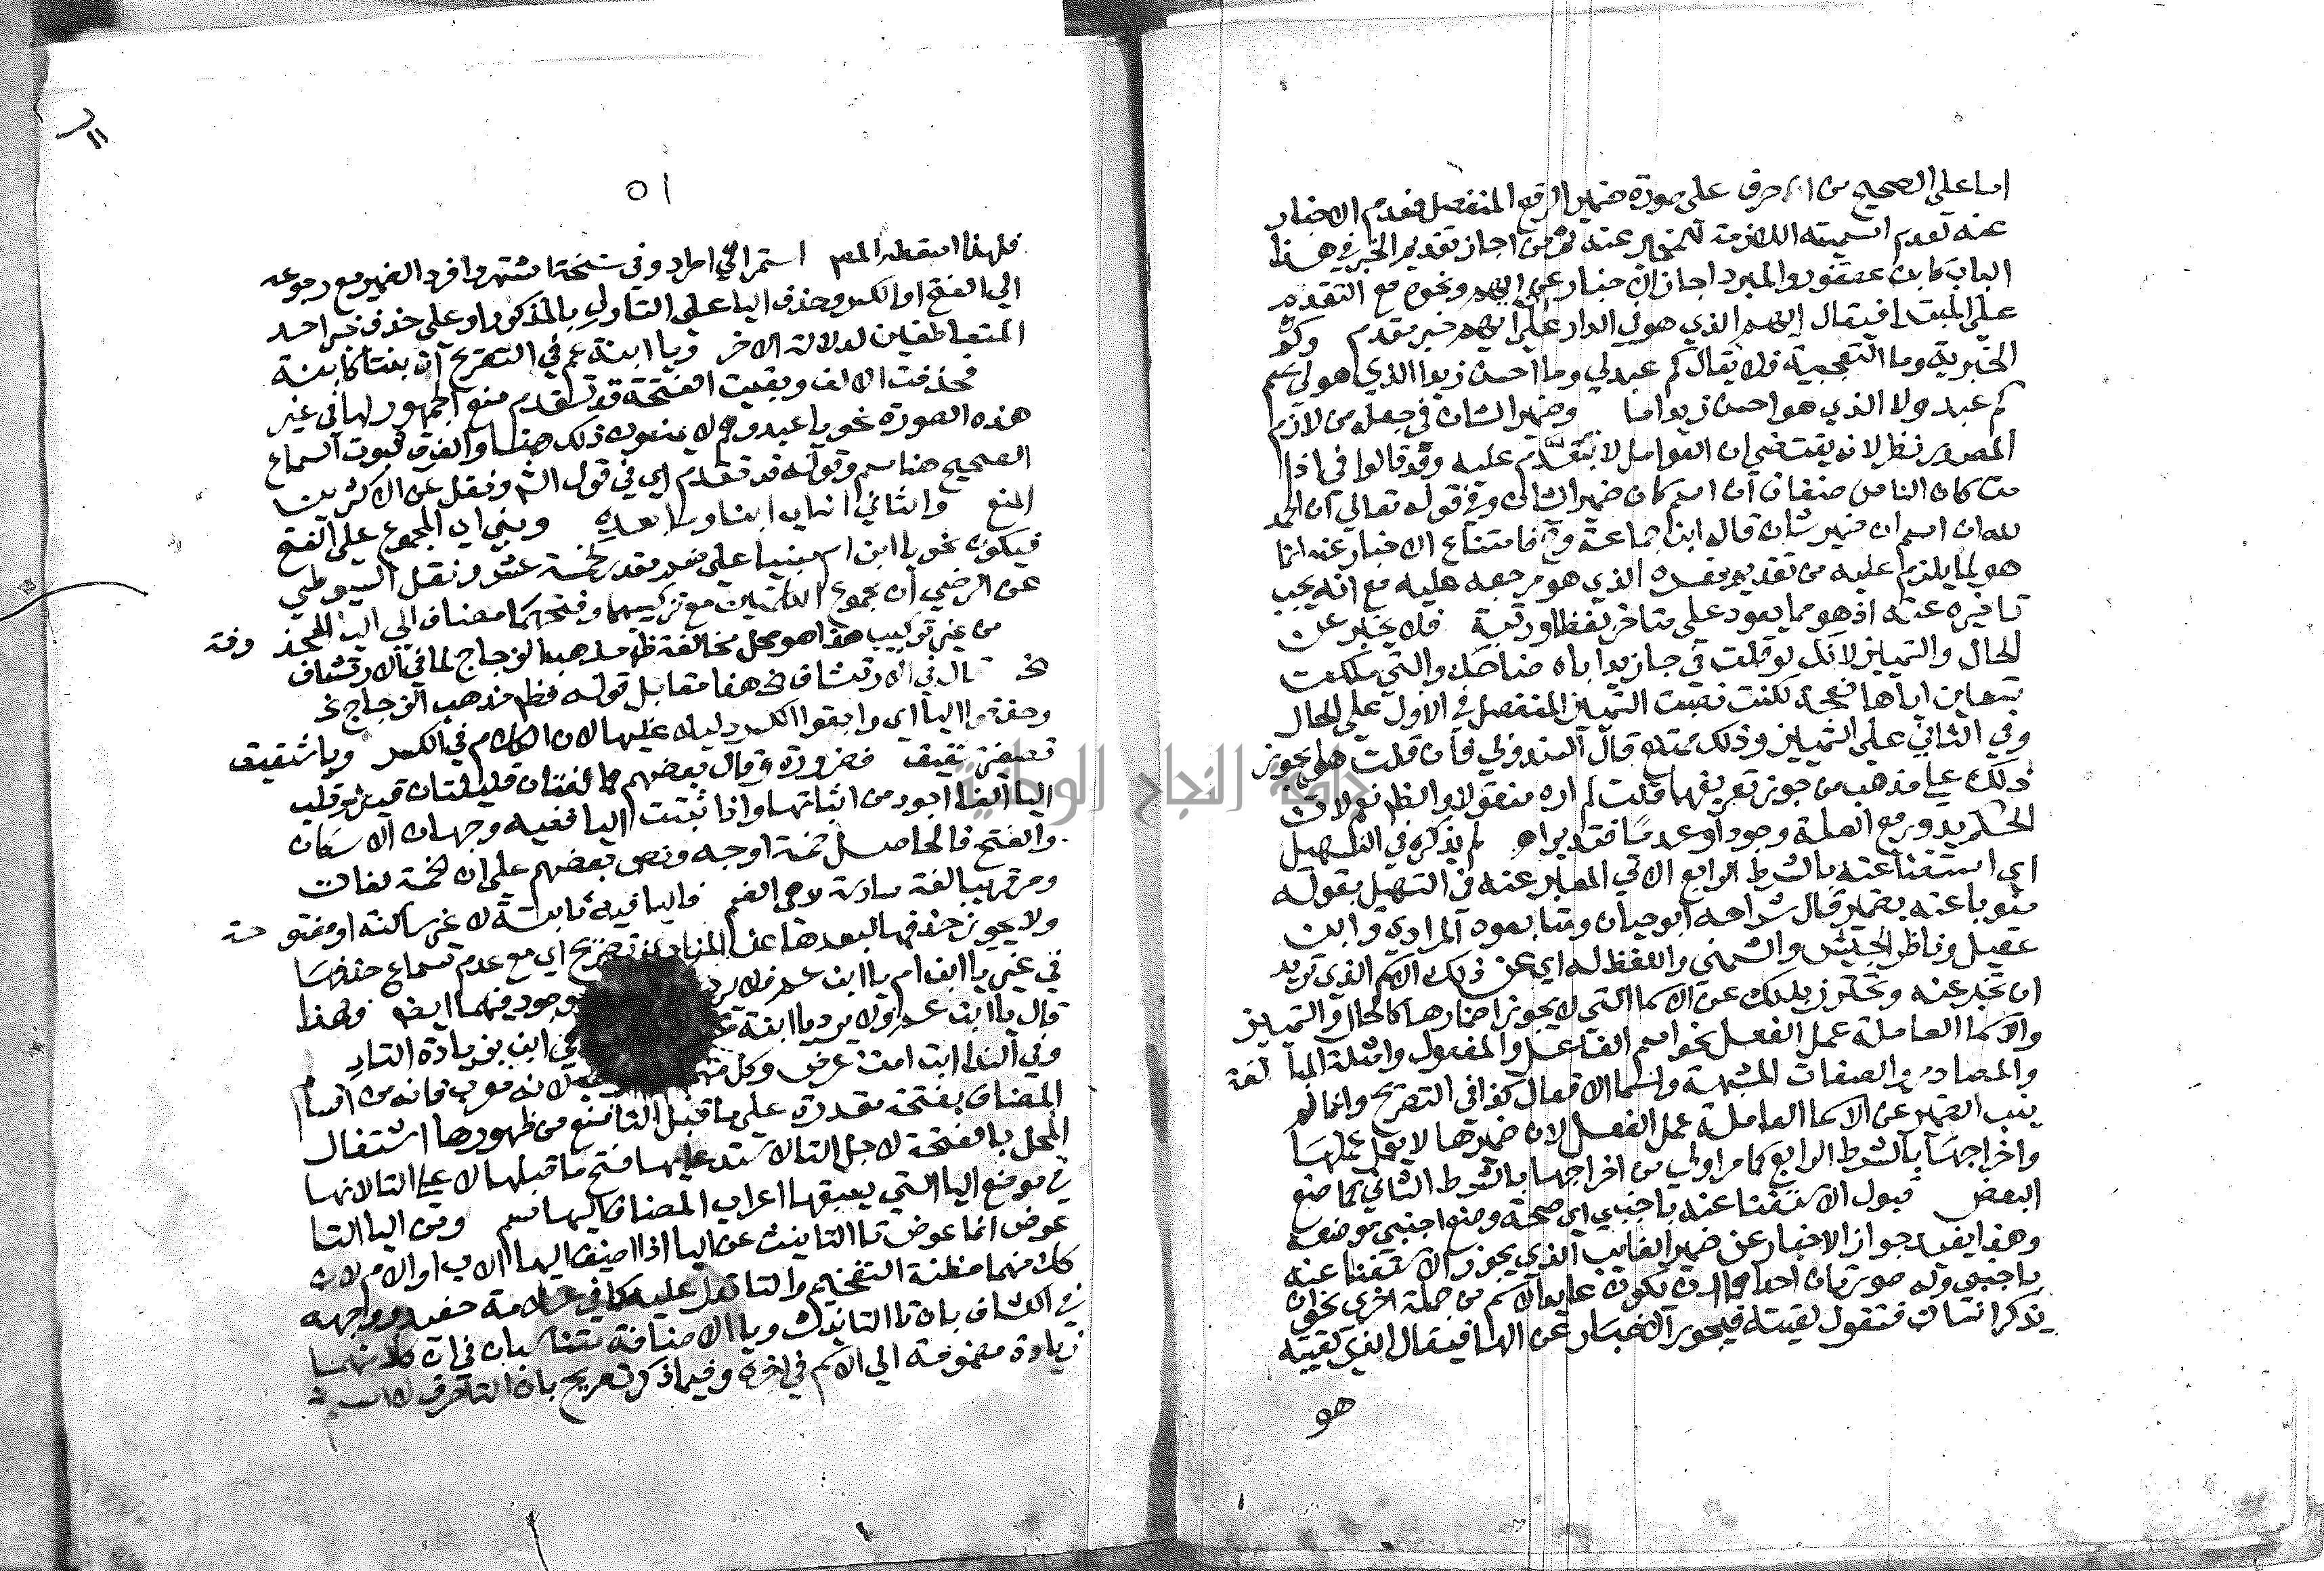 اما على الصحيح من انه حرف على صورة ضمير الرفع المنفصل فعدم الاخبار
عنه لعدم اسميته اللازمة للمخبر عنه ثم من اجاز تقديم الخبر في هذا
الباب كابن عصفور والمبرد اجاز الاخبار عن ايهم ونحوه مع التقدم
على المبتدا فيقال ايهم الذي هو في الدار على ان ايهم خبر مقدم وكم
الخبرية وما التعجبية فلا يقال كم عبد لي وما احسن زيدا الذي هو لي
كم عبد ولا الذي هو احسن زيدا ما وضمير الشان في جعله من لازم
الصدر نظر لانه يقتضي ان العوامل لا تتقدم عليه وقد قالوا في اذا
مت كان الناس صنفان ان اسم كان ضمير الشان وفي قوله تعالى ان الحمد
لله ان اسم ان ضمير شان قال ابن جماعة فامتناع الاخبار عنه انما
هو لما يلزم عليه من تقديم مفسره الذي هو مرجعه عليه مع انه يجب
تاخيره عنه اذ هو مما يعود على متاخر لفظا ورتبة فلا يخبر عن
الحال والتمييز لانك لو قلت في جا زيد اياه ضاحك والتي ملكت
تسعين اياها نعجة لكنت نصبت الضمير المنفصل في الاول على الحال
وفي الثاني على التمييز وذلك ممتنع قال السندوبي فان قلت هل يجوز
ذلك على مذهب من جوز تعريفهما قلت لم اره منقولا والظاهر نعم لان
الحكم يدور مع العلة وجودا وعدما فتدبر اه لم يذكره في التسهيل
اي استغناء عنه بالشرط الرابع الاتي المعبر عنه في التسهيل بقوله
منوبا عنه بضمير قال شراحه ابو حيان ومتابعوه المرادي وابن
عقيل وناظر الجيش والشمني واللفظ له اي عن ذلك الاسم الذي تريد
ان تخبر عنه وتحترز بذلك عن الاسما التي لا يجوز اضمارها كالحال والتمييز
والاسما العاملة عمل الفعل نحو اسم الفاعل والمفعول وامثلة المبالغة
والمصادر والصفات المشبهة واسما الافعال كذا في التصريح وانما لم
ينب الضمير عن الاسما العاملة عمل الفعل لان ضميرها لا يعمل عملها
واخراجها بالشرط الرابع كما مر اولى من اخراجها بالشرط الثاني كما صنع
البعض قبول الاستغنا عنه باجنبي اي صحة وضع اجنبي موضعه
وهذا يفيد جواز الاخبار عن ضمير الغايب الذي يجوز الاستغنا عنه
باجنبي وله صورتان احداهما ان يكون عايد الاسم من جملة اخرى نحو ان
يذكر انسان فتقول لقيته فيجوز الاخبار عن الها فيقال الذي لقيته
هو
١٥
فلهذا اسقطه المص استمرا اي اطراد وفي نسخة اشتهر وافرد الضمير مع رجوعه
الى الفتح او الكسر وحذف اليا على التاويل بالمذكور او على حذف خبر احد
المتعاطفين لدلالة الاخر ويا ابنة عم في التصريح ان بنتا كابنة
فحذفت الالف وبقيت الفتحة قد تقدم منع الجمهور لها في غير
هذه الصورة نحو يا عبد وهم لا يمنعون ذلك هنا والفرق ثبوت السماع
الصحيح هنا سم وقوله قد تقدم اي في قول الش ونقل عن الاكثرين
المنع والثاني انهما وبني اي المجموع على الفتح
فيكون نحو يا ابن ام مبنيا على ضم مقدر كخمسة عشر ونقل السيوطي
عن الرضي ان مجموع الكلمتين مع تركيبهما وفتحهما مضاف الى اليا المحذوفة
من غير تركيب هذا هو محل مخالفة ظاهر مذهب الزجاج لما في الارتشاف
قال في الارتشاف الخ هذا مقابل قوله ظاهر مذهب الزجاج الخ
وحذفوا اليا اي وابقوا الكسر دليلا عليها لان الكلام في الكسر ويا شقيق
تصغير شقيق فضرورة وقال بعضهم هما لغتان قليلتان قيل وقلب
اليا الفا اجود من اثباتها واذا ثبتت اليا ففيه وجهان الاسكان
والفتح فالحاصل خمسة اوجه ونص بعضهم على ان الخمسة لغات
ومر قريبا لغة سادسة وهي الضم فاليا فيه ثابتة لا غير ساكنة او مفتوحة
ولا يجوز حذفها لبعدها عن المنادى تصريح اي مع عدم سماع حذفها
في غير يا ابن ام يا ابن عم فلا يرد موجود فيهما ايضا ولهذا
قال يا ابن عم ولا يرد يا ابنة في ابن بزيادة التا
وفي الندا ابت امت عرض وكل منهما لانه معرب فانه من اقسام
المضاف بفتحة مقدرة على ما قبل التا منع من ظهورها اشتغال
المحل بالفتحة لاجل التا لاستدعائها فتح ما قبلها لا على التا لانها
في موضع اليا التي يسبقها اعراب المضاف اليها سم ومن اليا التا
عوض انما عوض تا التانيث عن اليا اذا اضيف اليها الاب او الام لان
كلا منهما مظنة التفخيم والتا تدل عليه كما في علامة حفيد ووجهه
في الكشاف بان تا التانيث ويا الاضافة متناسبان في ان كلا منهما
زيادة مضمومة الى الاسم في اخره وفيما ذكر تصريح بان التا حرف لا اسم